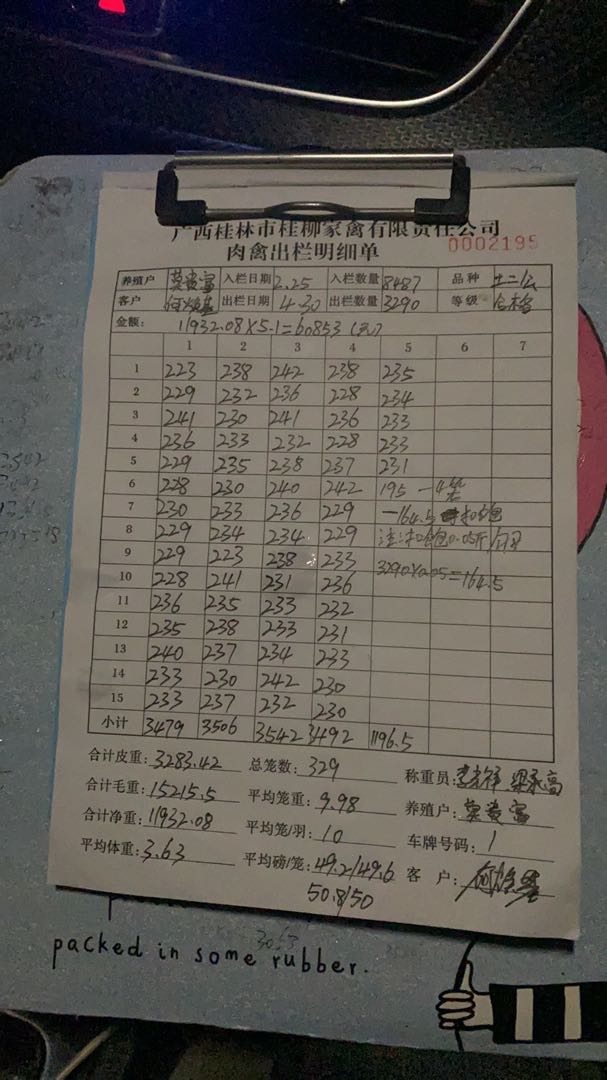 广西桂林市桂柳家禽有限责任公司
肉禽出栏明细单 0002195
养殖户 莫贵富 入栏日期 2.25 入栏数量 8487 品种 土二公
客户 出栏日期 4.30 出栏数量 3290 等级 合格
金额: 11932.08×5.1=60853(元)
1 2 3 4 5 6 7
1 223 238 242 238 235
2 229 232 236 228 234
3 241 230 241 236 233
4 236 233 232 228 233
5 229 235 238 237 231
6 228 230 240 242 195 -4笼
7 230 233 236 229 -164.5 扣饱
8 229 234 234 229 注:扣饱0.05斤/羽
9 229 223 238 233
10 228 241 231 236 3290×0.05=164.5
11 236 235 233 232
12 235 238 233 231
13 240 237 234 233
14 233 230 242 230
15 233 237 232 230
小计 3479 3506 3542 3492 1196.5
合计皮重: 3283.42 总笼数: 329 称重员:
合计毛重: 15215.5 平均笼重: 9.98 养殖户: 莫贵富
合计净重: 11932.08 平均笼/羽: 10 车牌号码: 1
平均体重: 3.63 平均磅/笼: 49.2/49.6 客 户:
50.8/50
packed in some rubber.